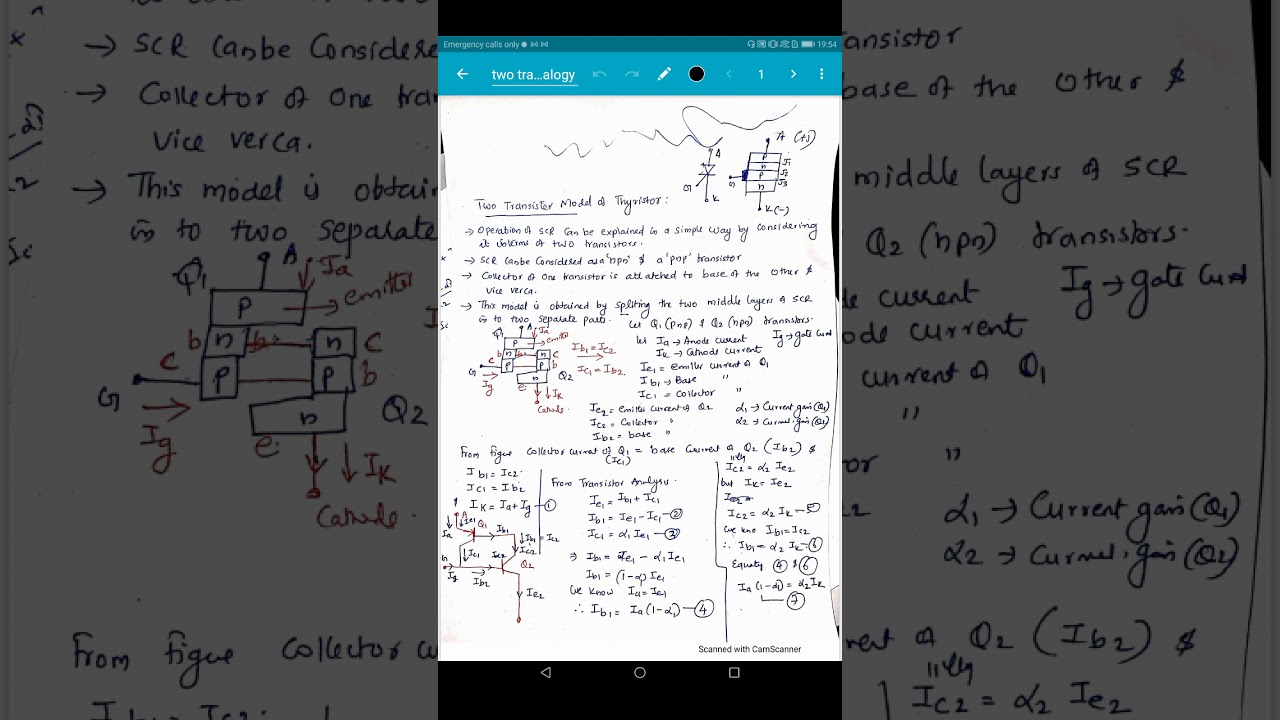 Emergency calls only
19:54
two tra...alogy
1
A
G
K
A (+)
P
n
P
n
J1
J2
J3
G
K(-)
Two Transister Model of Thyristor:
→ Operation of SCR can be explained in a simple way by considering
it in terms of two transistors.
→ SCR canbe Considered as a 'npn' & a 'pnp' transistor
→ Collector of one transistor is attatched to base of the other &
vice verca.
→ This model is obtained by spliting the two middle layers of SCR
in to two separate parts.
Let Q1 (pnp) & Q2 (npn) transistors.
let Ia → Anode current Ig → gate
IK → Cathode current
Ie1 = emitter current of Q1
Ib1 → Base "
Ic1 = Collector "
Ie2 = emitter current of Q2 α1 → Current gain (Q1)
Ic2 = Collector " α2 → Current gain (Q2)
Ib2 = base "
Q1
A
Ia
P
emitter
b
n
n
c
c
P
P
b
G
Ig
n
e
Q2
IK
Cathode.
Ib1 = Ic2
Ic1 = Ib2
From figure collector current of Q1 = base current of Q2 (Ib2) &
(Ic1)
Ib1 = Ic2
Ic1 = Ib2
IK = Ia + Ig — 1
A
Ia
Ie1
Q1
Ib1
Ib1 = Ic2
Ic1
Ic2
Ic2
Q2
G
Ig
Ib2
Ie2
From Transistor Analysis.
Ie1 = Ib1 + Ic1
Ib1 = Ie1 - Ic1 — 2
Ic1 = α1 Ie1 — 3
⇒ Ib1 = Ie1 - α1 Ie1
Ib1 = (1-α1) Ie1
we know Ia = Ie1
∴ Ib1 = Ia (1-α1) — 4
lly
Ic2 = α2 Ie2
but IK = Ie2
Ic2 = α2 IK — 5
we kno Ib1 = Ic2
∴ Ib1 = α2 IK — 6
Equating 4 & 6
Ia (1-α1) = α2 IK
7
Scanned with CamScanner